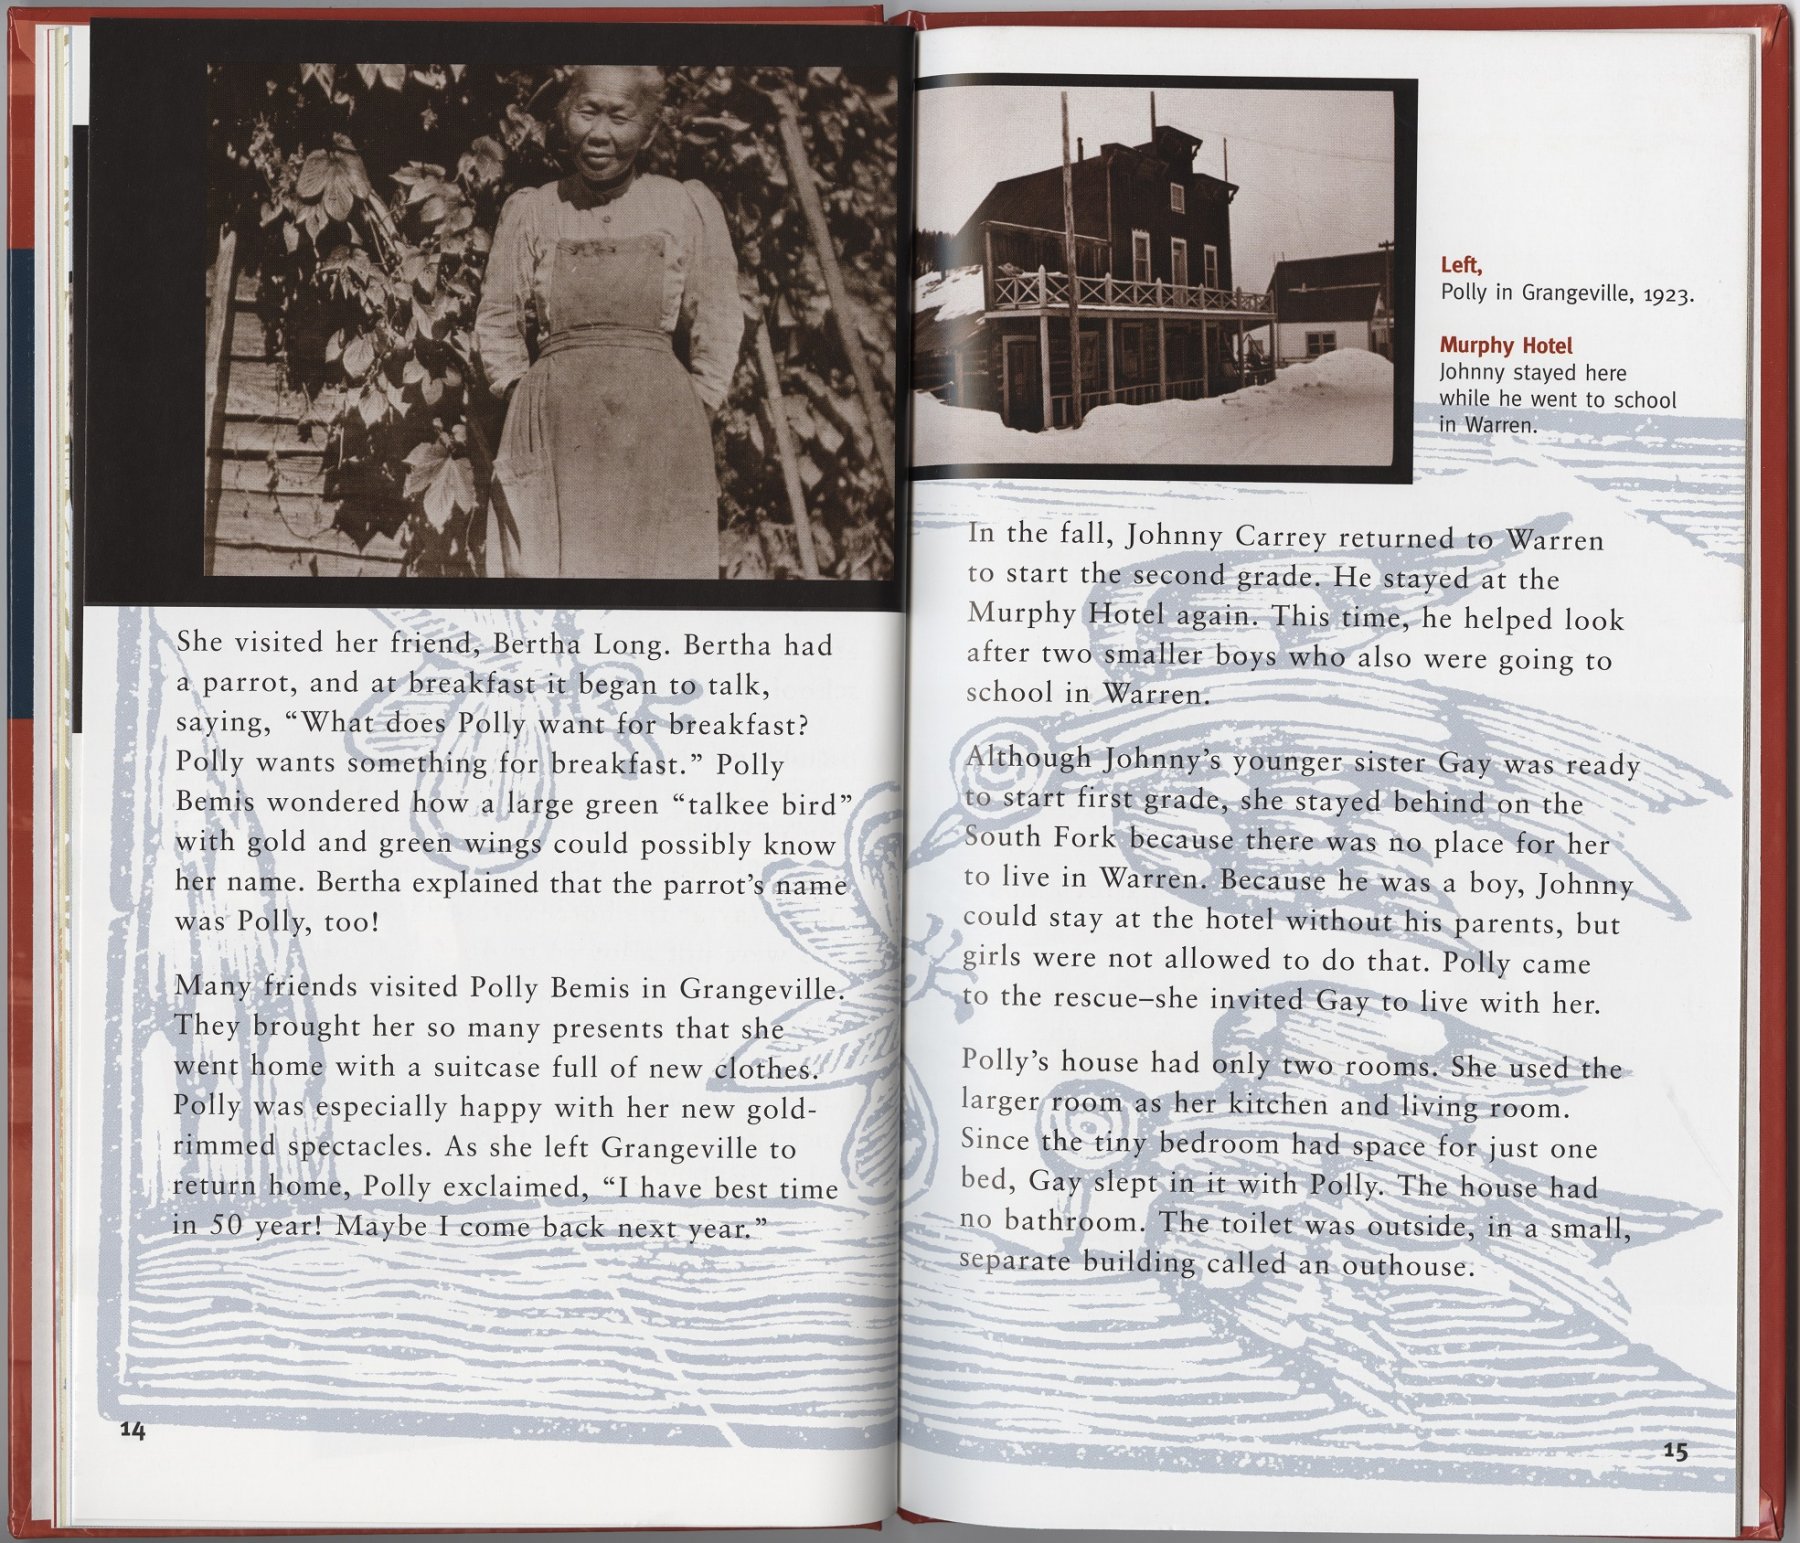 She visited her friend, Bertha Long. Bertha had
a parrot, and at breakfast it began to talk,
saying, “What does Polly want for breakfast?
Polly wants something for breakfast.” Polly
Bemis wondered how a large green “talkee bird”
with gold and green wings could possibly know
her name. Bertha explained that the parrot’s name
was Polly, too!
Many friends visited Polly Bemis in Grangeville.
They brought her so many presents that she
went home with a suitcase full of new clothes.
Polly was especially happy with her new gold-
rimmed spectacles. As she left Grangeville to
return home, Polly exclaimed, “I have best time
in 50 year! Maybe I come back next year.”
14
Left,
Polly in Grangeville, 1923.
Murphy Hotel
Johnny stayed here
while he went to school
in Warren.
In the fall, Johnny Carrey returned to Warren
to start the second grade. He stayed at the
Murphy Hotel again. This time, he helped look
after two smaller boys who also were going to
school in Warren.
Although Johnny’s younger sister Gay was ready
to start first grade, she stayed behind on the
South Fork because there was no place for her
to live in Warren. Because he was a boy, Johnny
could stay at the hotel without his parents, but
girls were not allowed to do that. Polly came
to the rescue–she invited Gay to live with her.
Polly’s house had only two rooms. She used the
larger room as her kitchen and living room.
Since the tiny bedroom had space for just one
bed, Gay slept in it with Polly. The house had
no bathroom. The toilet was outside, in a small,
separate building called an outhouse.
15